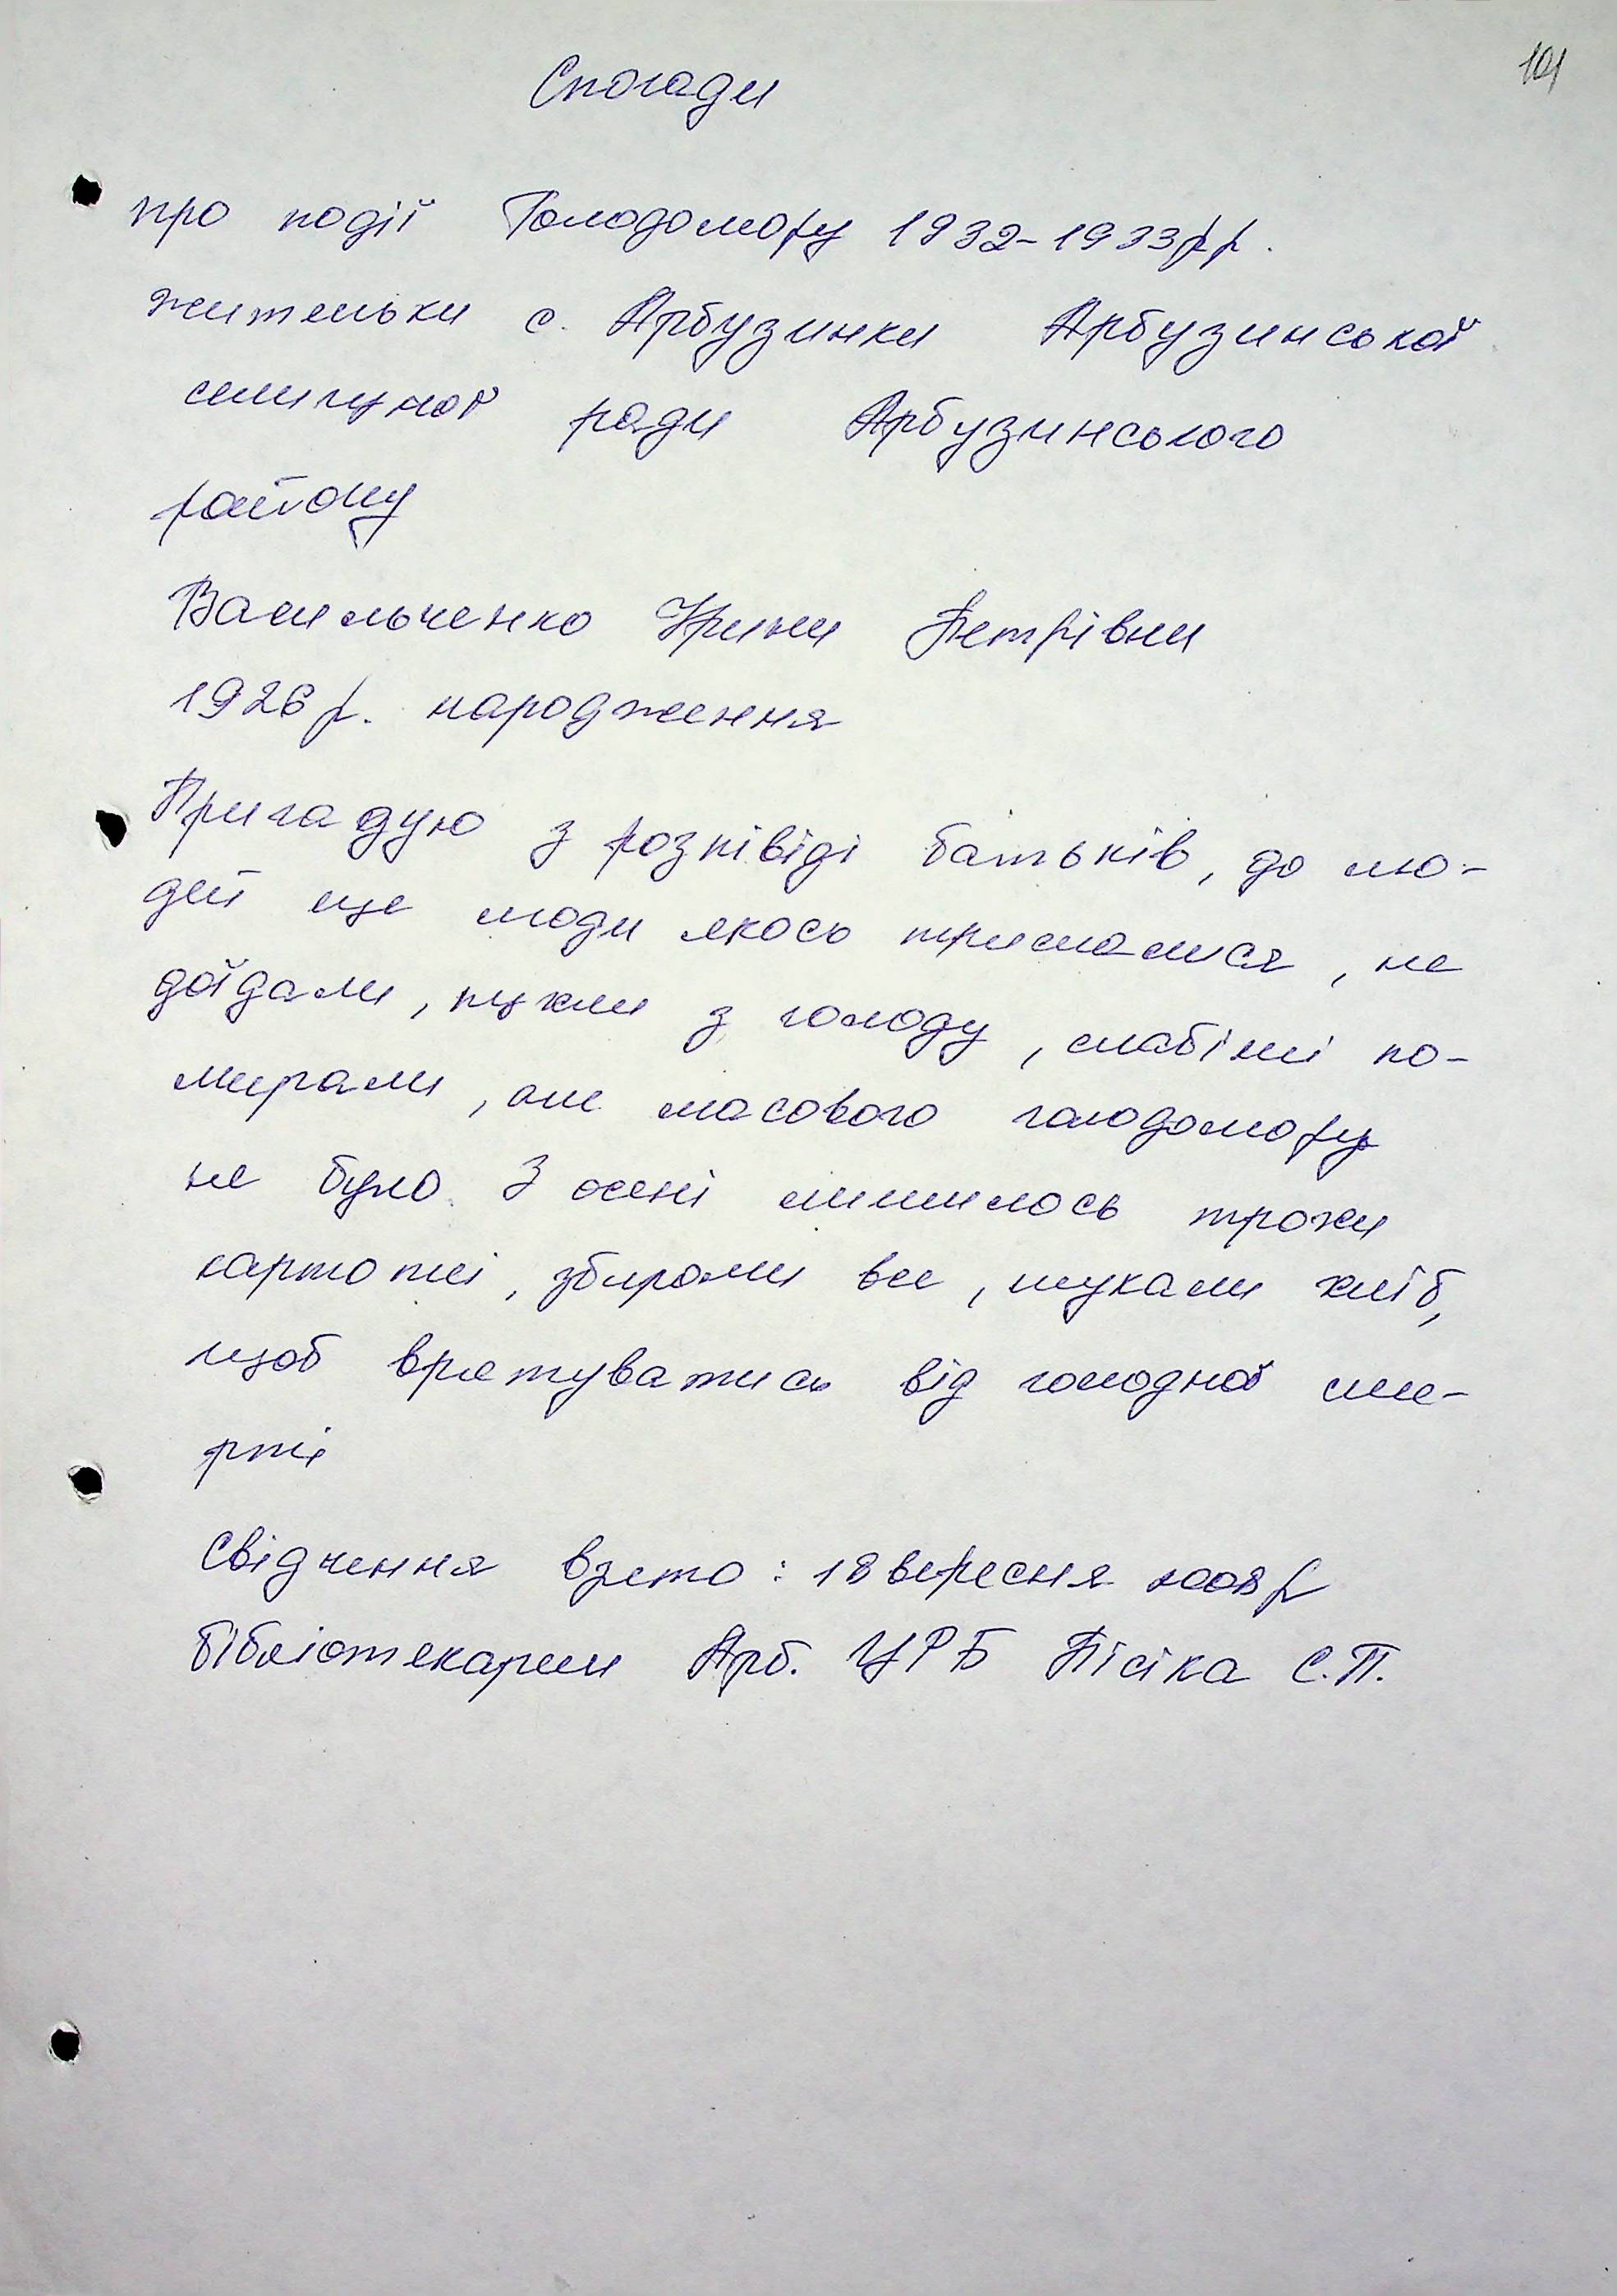 101
Спогади
про події Голодомору 1932-1933рр.
жительки с. Арбузинки Арбузинської
селищної ради Арбузинського
району
Васильченко Ірини Петрівни
1926 р. народження
Пригадую з розпівіді батьків, до лю-
дей ще люди якось трималися, не
доїдали, пухли з голоду, слабіші по-
мирали, але масового голодомору
не було. З осені лишилось трохи
картоплі, збирали все, шукали хліб,
щоб врятуватись від голодної сме-
рті
Свідчення взято: 18 вересня 2008 р
бібліотекарем Арб. ЦРБ Пісіка С.П.